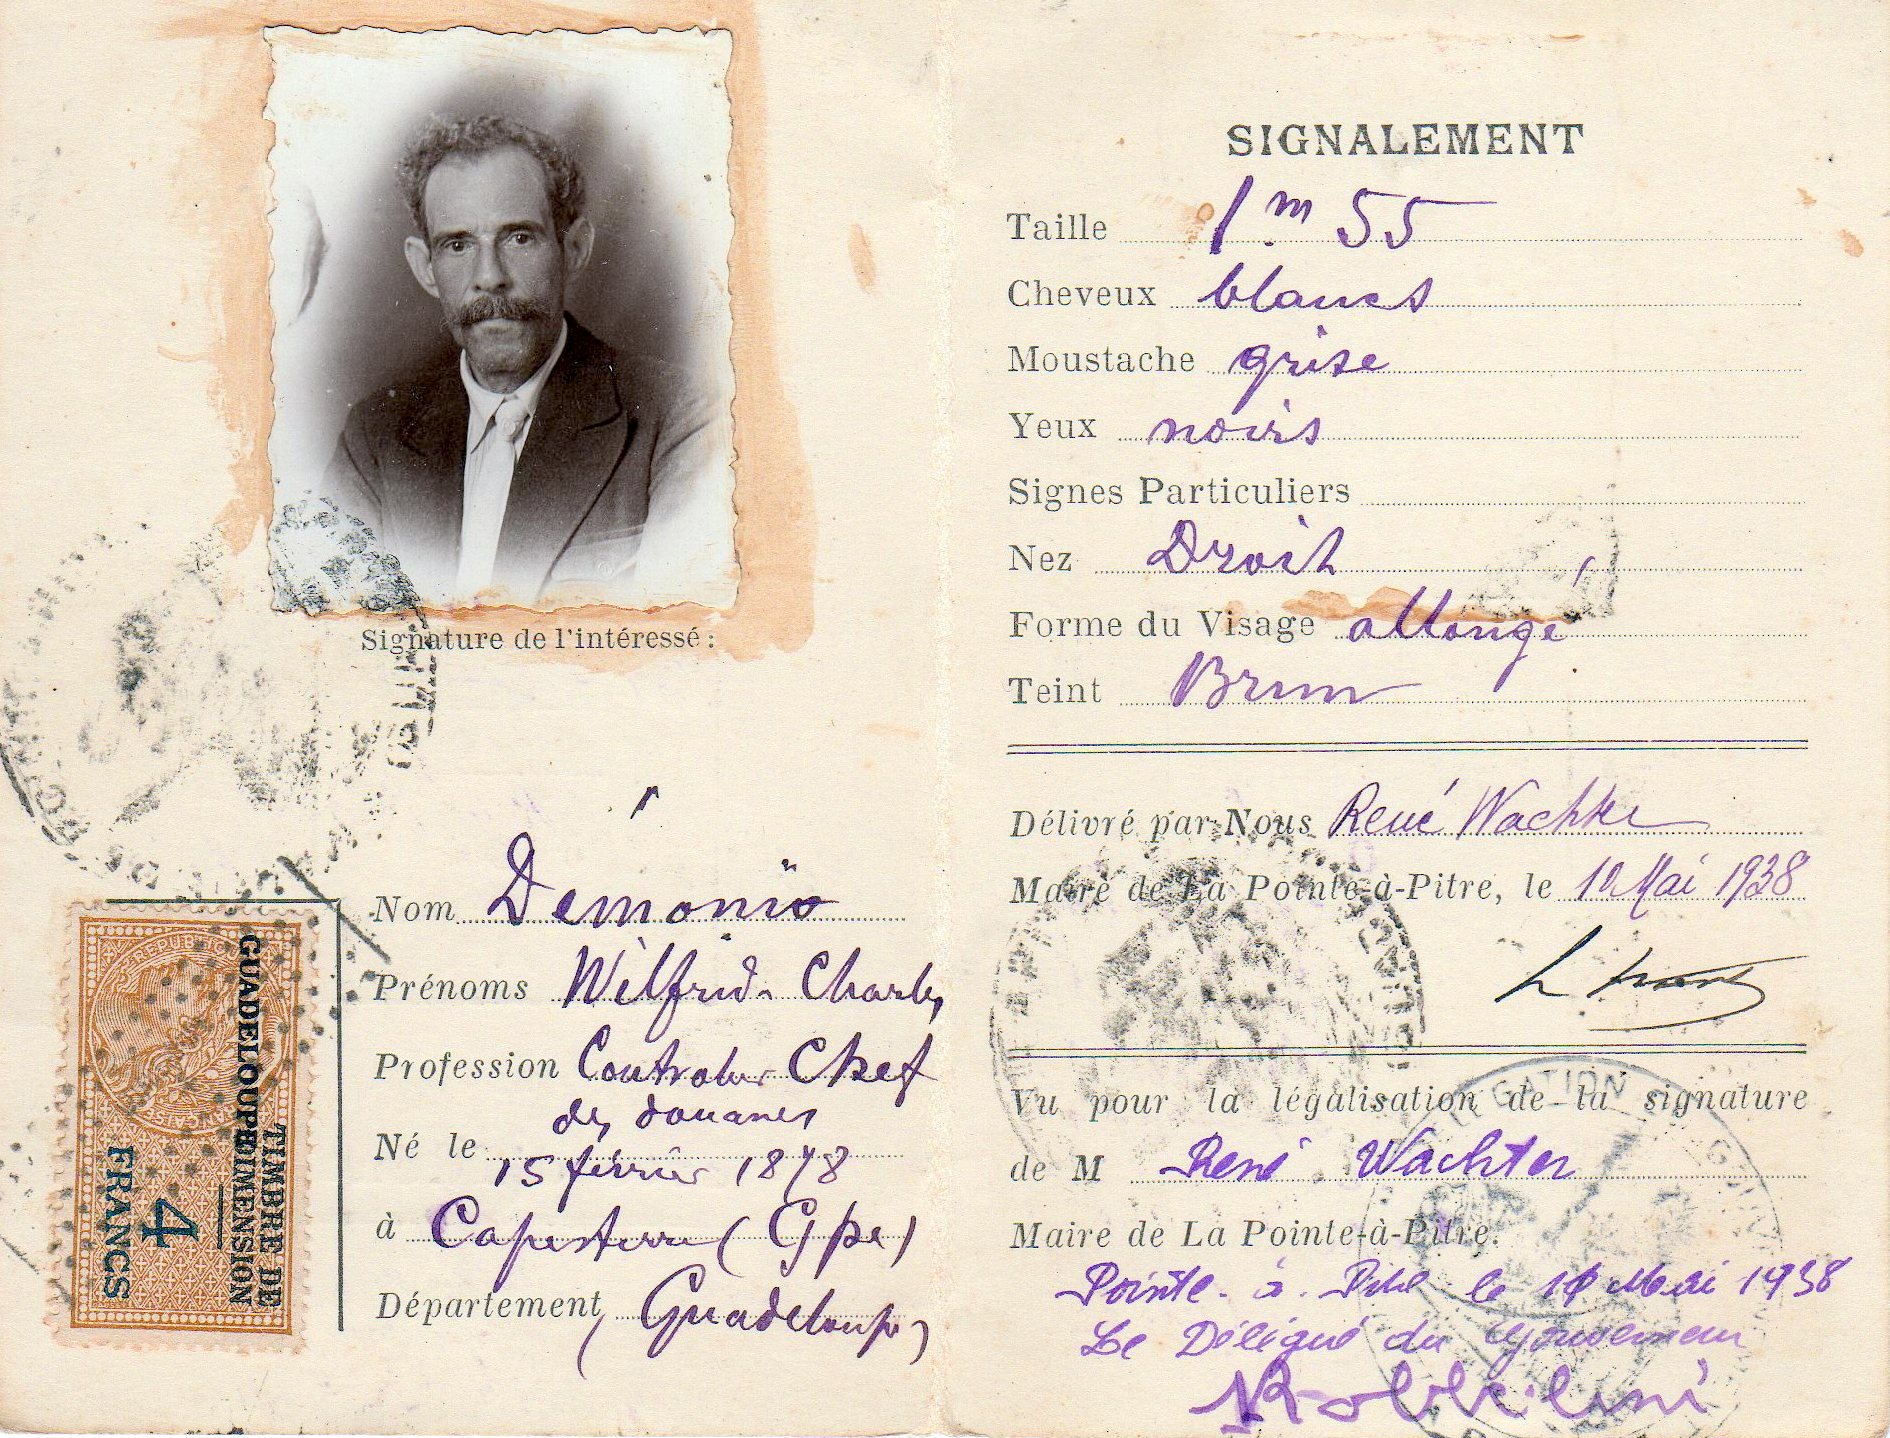 Signature de l'intéressé :
Nom Démonio
Prénoms Wilfrid Charles
Profession Controleur Chef
des douanes
Né le 15 février 1878
à Capesterre (Gpe)
Département (Guadeloupe)
RÉPUBLIQUE
GUADELOUPE
TIMBRE DE
DIMENSION
4
FRANCS
SIGNALEMENT
Taille 1m 55
Cheveux blancs
Moustache grise
Yeux noirs
Signes Particuliers
Nez Droit
Forme du Visage allongé
Teint Brun
Délivré par Nous René Wachter
Maire de La Pointe-à-Pitre, le 10 Mai 1938
Vu pour la légalisation de la signature
de M René Wachter
Maire de La Pointe-à-Pitre.
Pointe-à-Pitre le 10 Mai 1938
Le Délégué du Gouverneur